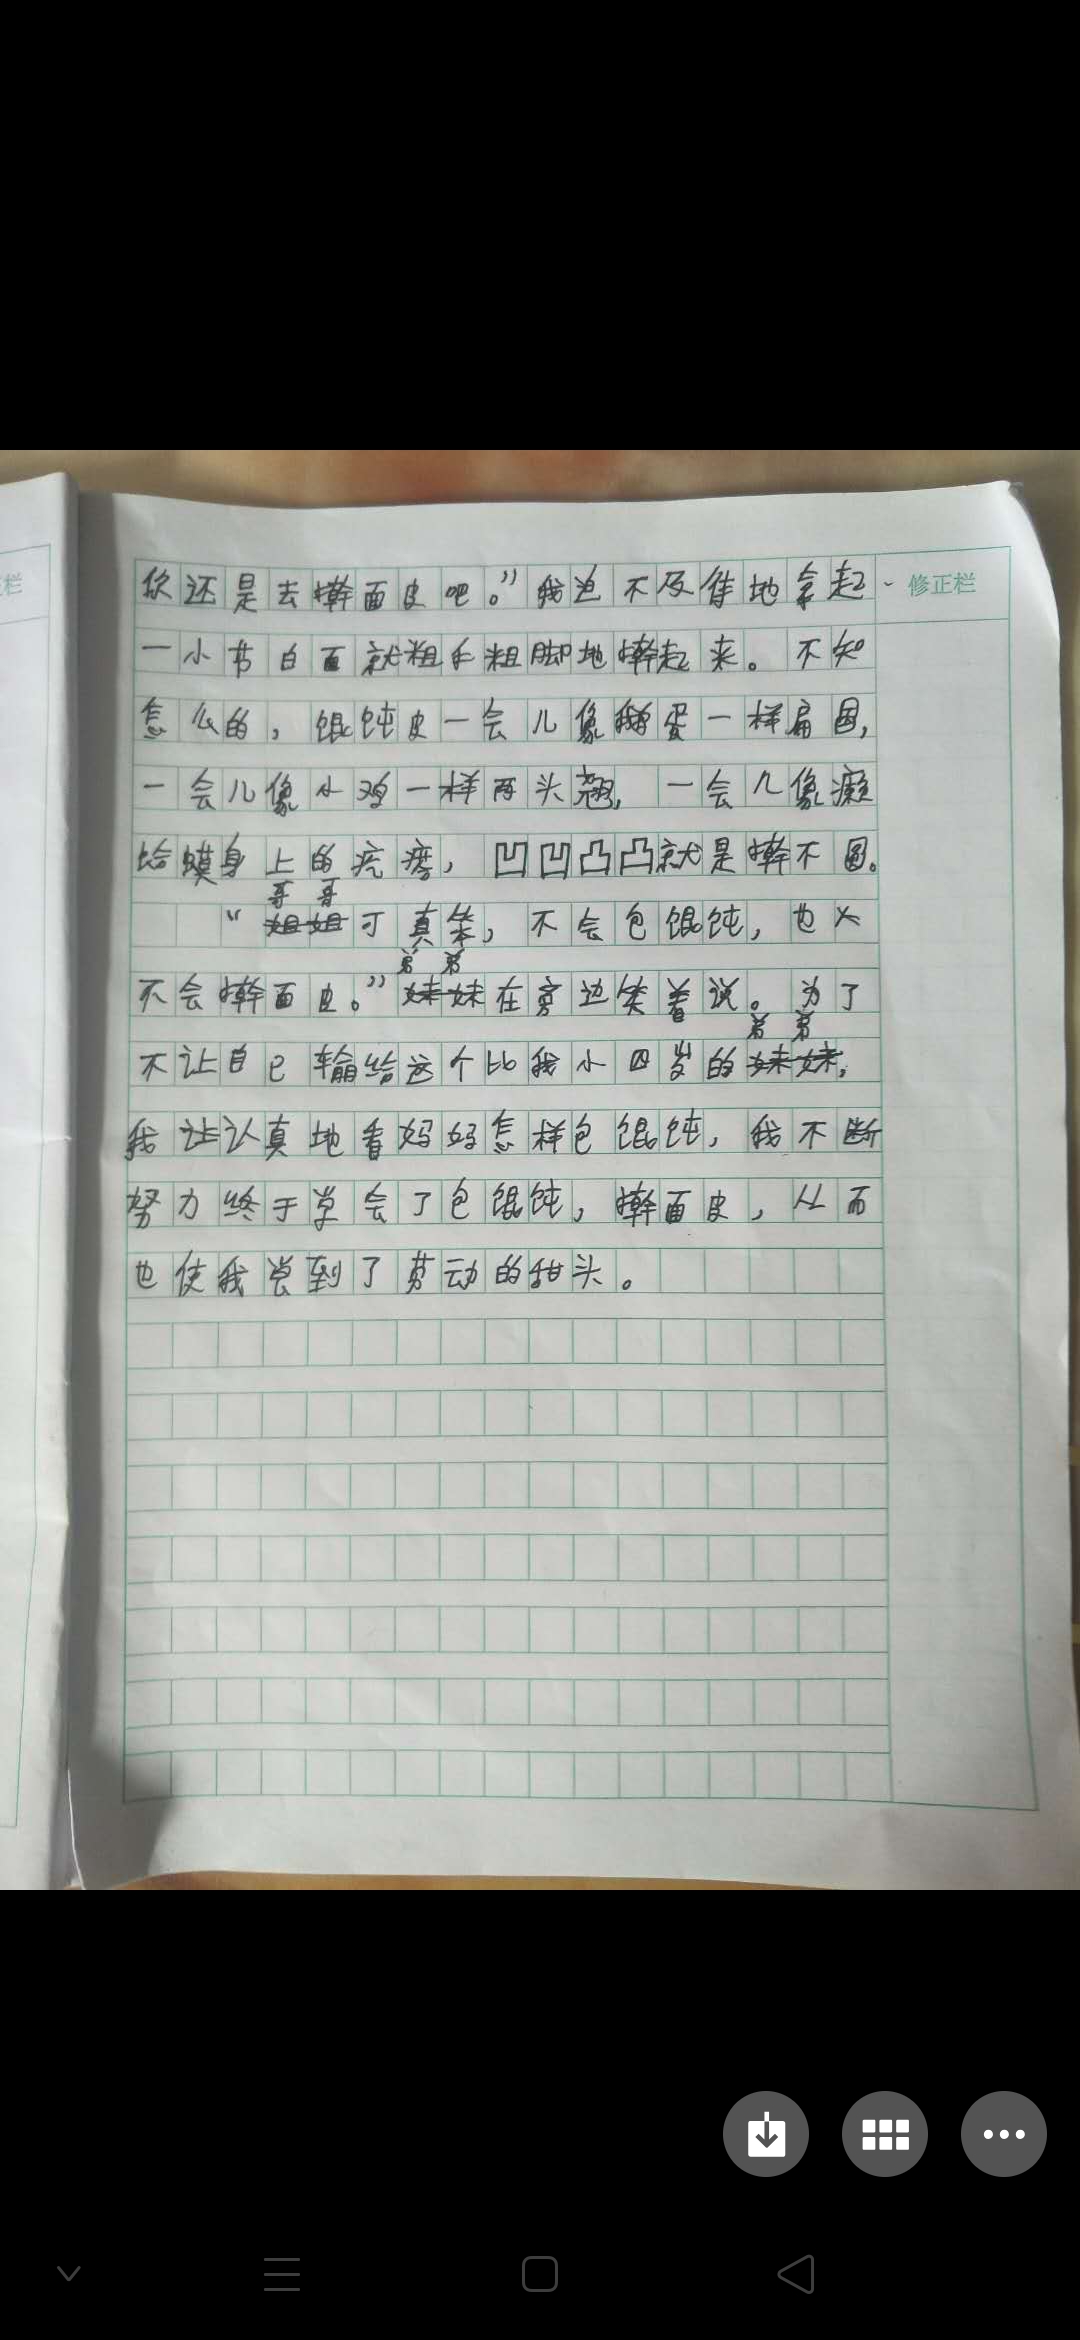 修正栏
正栏
你还是去擀面皮吧。”我迫不及待地拿起
一小节白面就粗手粗脚地擀起来。不知
怎么的，馄饨皮一会儿像鹅蛋一样扁圆，
一会儿像小鸡一样两头翘，一会儿像癞
蛤蟆身上的疙瘩，凹凹凸凸就是擀不圆。
“哥哥可真笨，不会包馄饨，也
不会擀面皮。”弟弟在旁边笑着说。为了
不让自己输给这个比我小四岁的弟弟，
我让认真地看妈妈怎样包馄饨，我不断
努力终于学会了包馄饨，擀面皮，从而
也使我尝到了劳动的甜头。